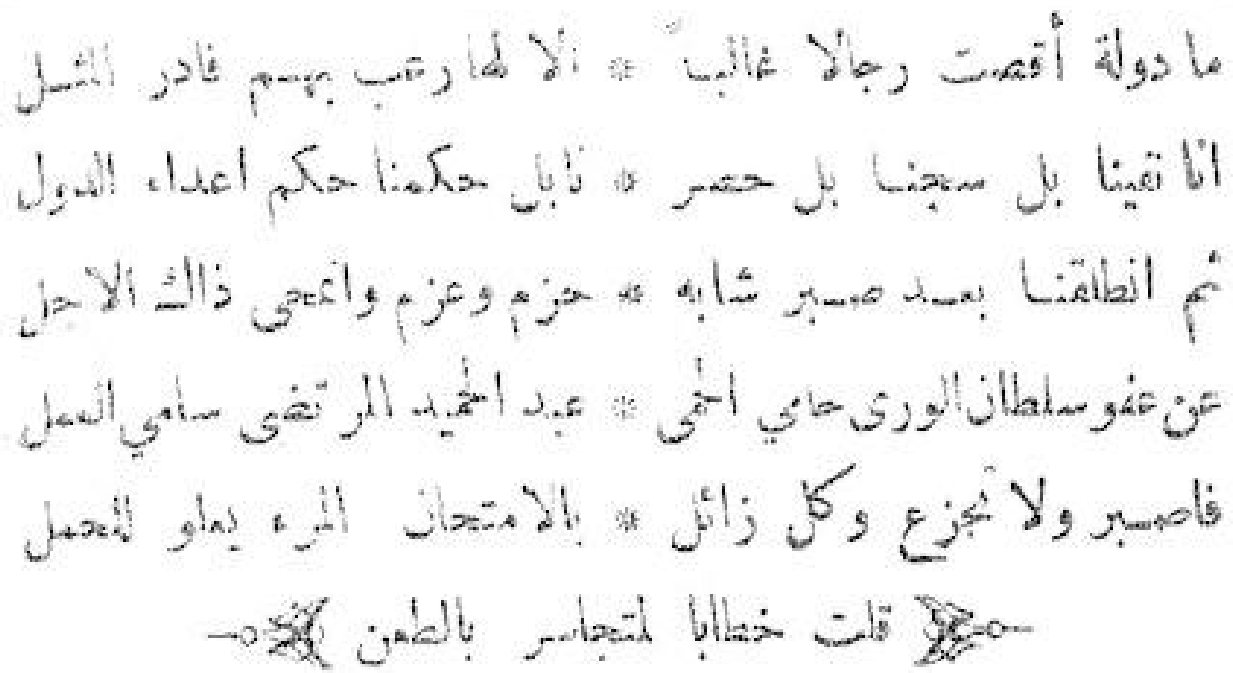 ما دولة أقصت رجالا غالبا * الا لها رعب بهم قادر الشلل
انا نفينا بل سجنا بل حصر * نابل حكمنا حكم اعداء الدول
ثم انطلقنا بعد صبر شابه * حزم وعزم وامحى ذاك الاجل
عن عفو سلطان الورى حامي الحمى * عبد الحميد المرتضى سامي العمل
فاصبر ولا تجزع وكل زائل * بالامتحان المرء يعلو للمحل
قلت خطابا لمتجاسر بالطعن